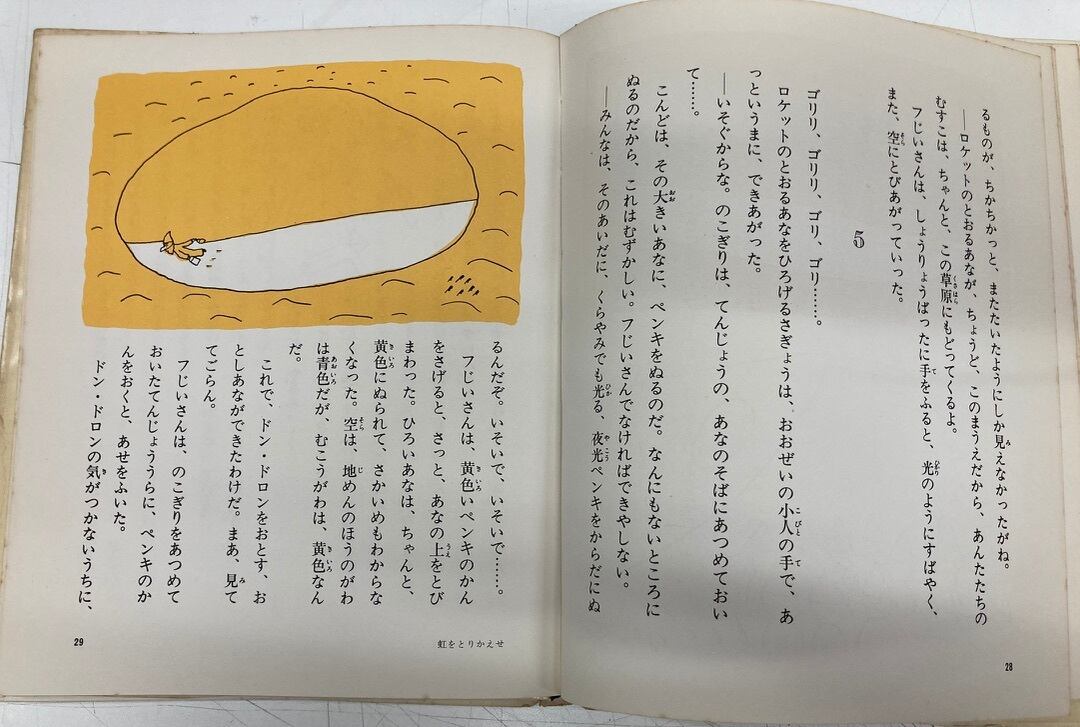 るものが、ちかちかっと、またたいたようにしか見えなかったがね。
――ロケットのとおるあなが、ちょうど、このまうえだから、あんたたちの
むすこは、ちゃんと、この草原にもどってくるよ。
フじいさんは、しょうりょうばったに手をふると、光のようにすばやく、
また、空にとびあがっていった。
5
ゴリリ、ゴリリ、ゴリ、ゴリ……。
ロケットのとおるあなをひろげるさぎょうは、おおぜいの小人の手で、あ
っというまに、できあがった。
――いそぐからな。のこぎりは、てんじょうの、あなのそばにあつめておい
て……。
こんどは、その大きいあなに、ペンキをぬるのだ。なんにもないところに
ぬるのだから、これはむずかしい。フじいさんでなければできやしない。
――みんなは、そのあいだに、くらやみでも光る、夜光ペンキをからだにぬ
28
るんだぞ。いそいで、いそいで……。
フじいさんは、黄色いペンキのかん
をさげると、さっと、あなの上をとび
まわった。ひろいあなは、ちゃんと、
黄色にぬられて、さかいめもわからな
くなった。空は、地めんのほうのがわ
は青色だが、むこうがわは、黄色なん
だ。
これで、ドン・ドロンをおとす、お
としあながができたわけだ。まあ、見て
てごらん。
フじいさんは、のこぎりをあつめて
おいたてんじょううらに、ペンキのか
んをおくと、あせをふいた。
ドン・ドロンの気がつかないうちに、
虹をとりかえせ
29